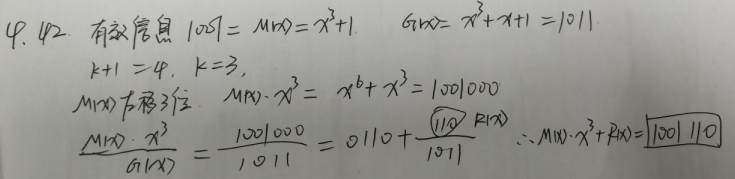 4.42 有效信息 1001 = M(x) = x³+1 G(x) = x³+x+1 = 1011
k+1 = 4, k=3,
M(x)左移3位 M(x)·x³ = x⁶+x³ = 1001000
M(x)·x³ / G(x) = 1001000 / 1011 = 0110 + 110 / 1011 R(x) ∴ M(x)·x³+R(x) = 1001 110